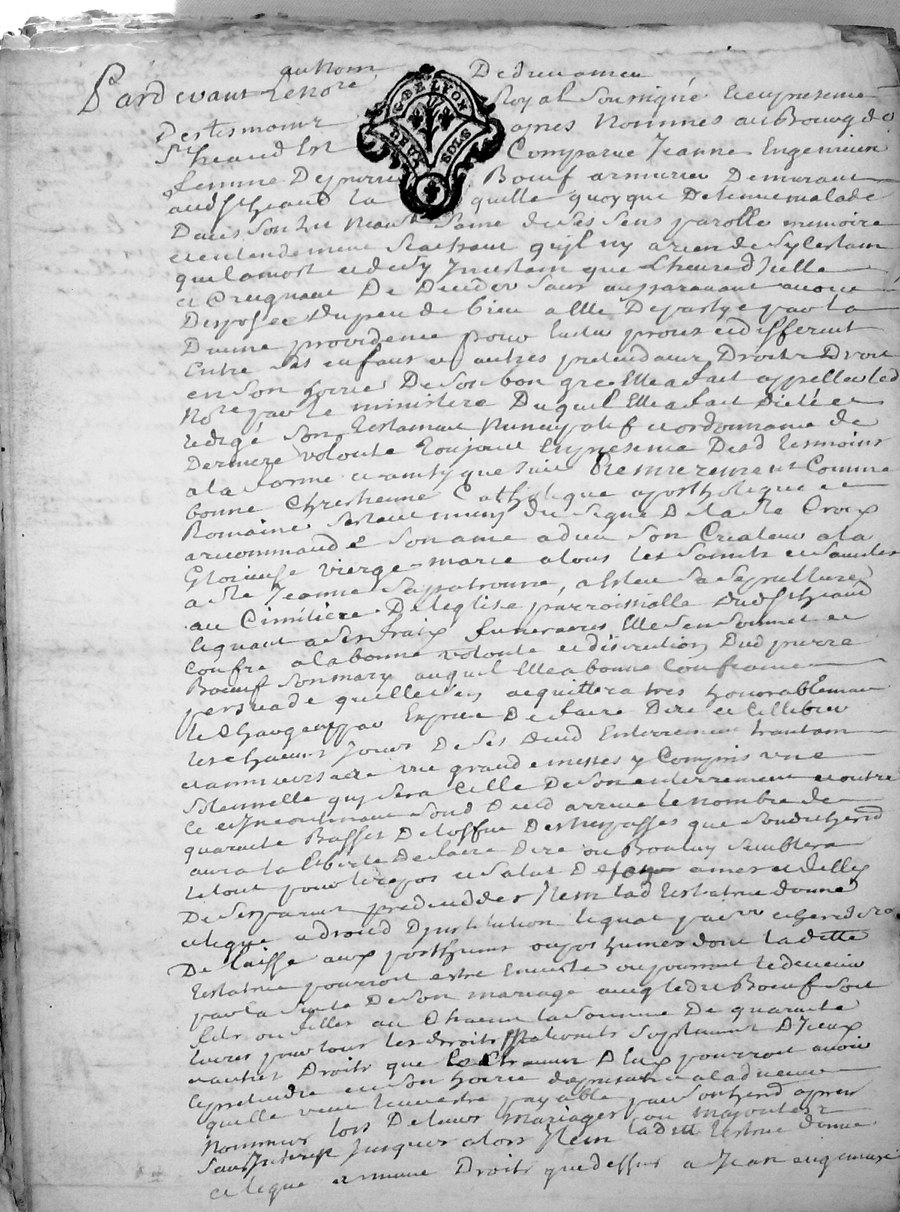 au Nom De dieu amen
Pardevant Le no.re Royal Soussigné et en presence
Des tesmoins apres Nommes au Bourg de
G. DE LYON
DEUX SOLS
St heand Est Comparue Jeanne
femme De pierre Boeuf armurier Demeurant
aud St heand la quelle quoyque Detenue malade
Dans Son lit Neaut Saine de Ses Sens parolle memoire
et entendement Scachant quil ny a rien de Sy Certain
que la mort et de Sy Incertain que L'heure d'Icelle
et Craignant De Deceder Sans auparavant avoir
Disposée du peu de bien a Elle Departye par la
Divine providence pour Eviter proces et differents
Entre Ses enfans et autres pretendants Droits
en Son hoirie De Son bon gré Elle a fait appeller led
No.re par le ministere Duquel Elle a fait Dicté et
redigé Son testament Nuncupatif et ordonnance de
Derniere volonté toujours En presence Desd tesmoins
a la forme et que Suit Premierement Comme
bonne Chrestienne Catholique apostholique et
Romaine Sestant muny du Signe De la Ste Croix
a recommandé Son ame a dieu Son Createur a la
Glorieuse vierge marie a tous les Saints et Saintes
a Ste Jeanne Sa patronne, a Esleu Sa Sepulture
au Cimitiere De leglise parroissialle dud St heand
Et quant a Ses fraix funeraires Elle Sen Soumet et
Confie a la bonne volonté et discretion Dud pierre
Boeuf Son mary auquel Elle a bonne Confiance
persuadé quil Sen aquittera tres honorablement
le Chargeant par Exprés De faire Dire et Cellebrer
les chacuns jours De Ses Dud Enterrement trantain
et anniversaire une grande messes y Compris une
Solennelle qui Sera Celle De Son enterrement et outre
Ce le nombre de
quarante Basses De loffice Des trepasses que Sond heritier
aura la liberté De faire Dire ou Bon luy Semblera
le tout pour le repos et Salut De Son ame et Celles
De Ses parents predecedes Item lad testatrice donne
et legue a droit D'institution legat par hered.ro
Delaisse aux posthumes ou posthumes dont laditte
testatrice pourroit estre Enceinte ou pourroit le devenir
par la Suite De Son mariage avec led Boeuf Soit
fils ou filles a Chacun la Somme De quarante
livres pour tous les droits Suplement D'Iceux
et autres Droits que Chacun D'Eux pourroit avoir
et pretendre en Son hoirie a ladvenir
quelle veut leur estre payable par Son herit apres
Nommés lors De leurs mariages ou majorites
Sans Interest Jusques alors Item laditt testatrice donne
et legue a meme Droits que dessus a Jean